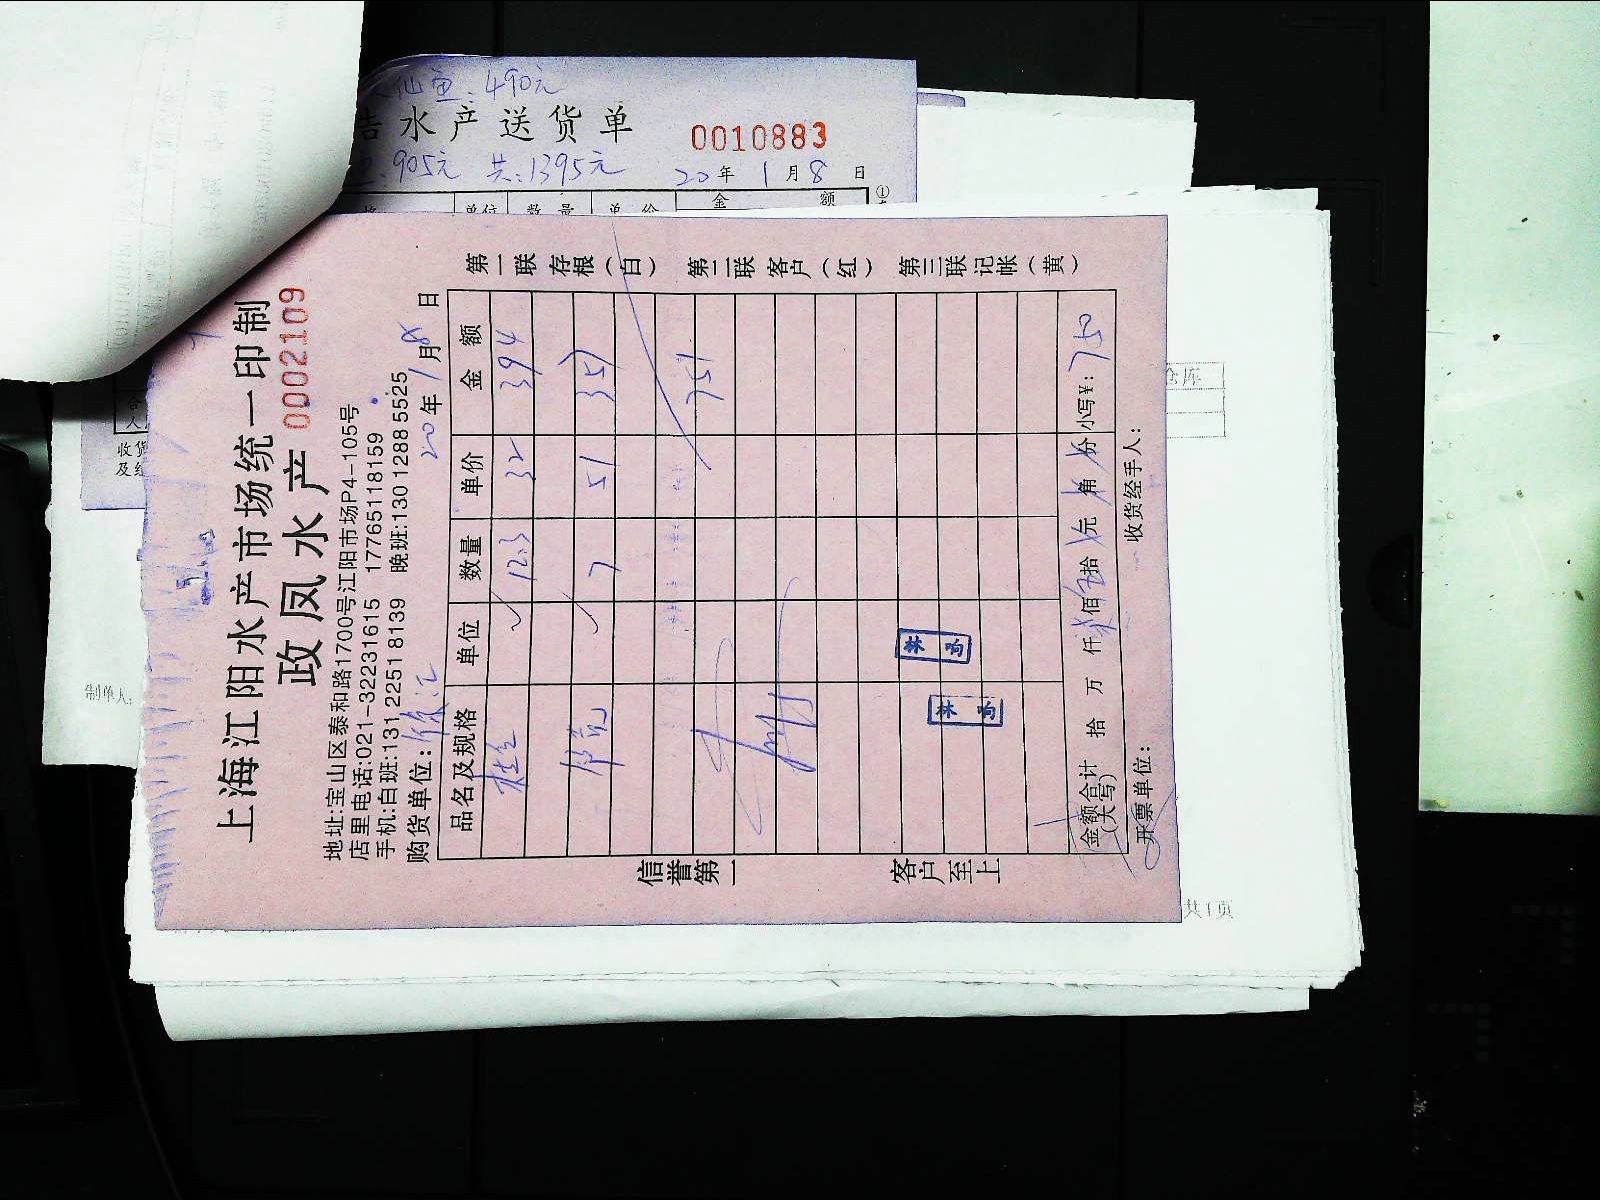 仙鱼:490元
水产送货单 0010883
905元 共:1395元 20年1月8日
单位 数量 单价 金额
①
上海江阳水产市场统一印制
政凤水产 0002109
地址:宝山区泰和路1700号江阳市场P4-105号
店里电话:021-32231615 17765118159
手机:白班:131 2251 8139 晚班:130 1288 5525
购货单位:徐汇 20年1月8日
品名及规格 单位 数量 单价 金额
桂鱼 ✓ 12.3 32 394
✓ 7 51 357
751
金额合计(大写) 拾 万 仟 柒佰伍拾 元 角 分 小写¥:750
开票单位: 收货经手人:
信誉第一 客户至上
第一联 存根(白) 第二联 客户(红) 第三联 记帐(黄)
收货
及经
制单人:
仓库
共1页